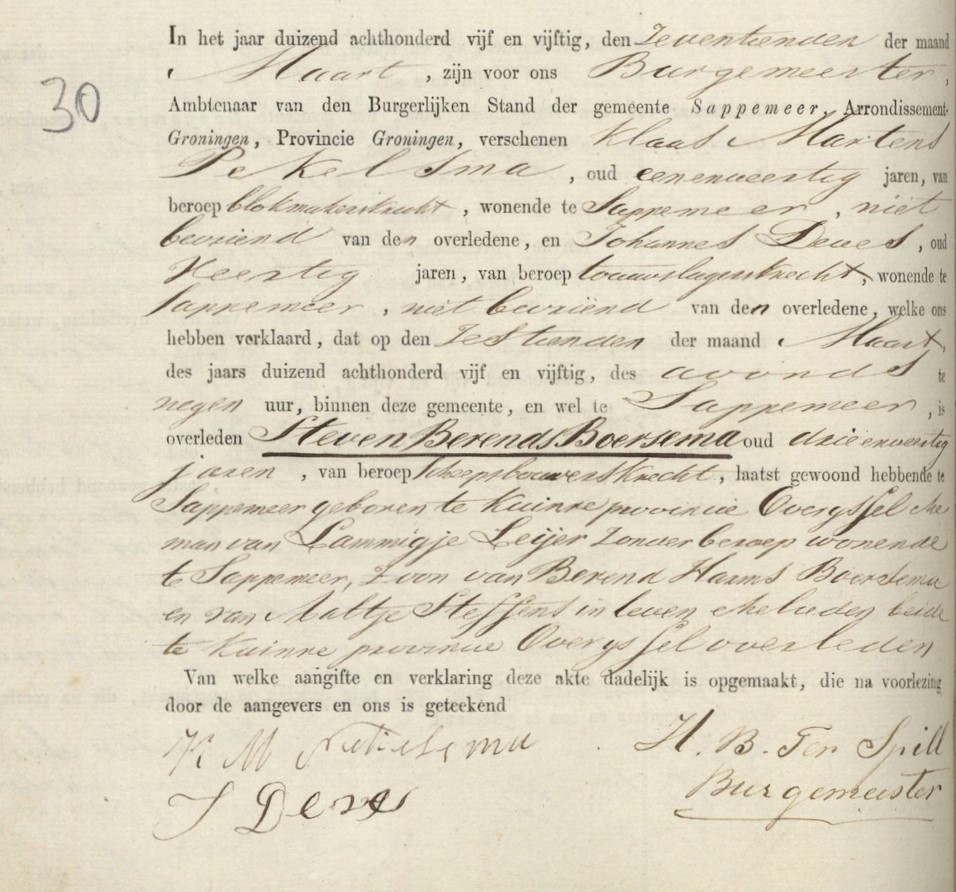 30
In het jaar duizend achthonderd vijf en vijftig, den Zeventienden der maand
Maart, zijn voor ons Burgemeester,
Ambtenaar van den Burgerlijken Stand der gemeente Sappemeer, Arrondissement-
Groningen, Provincie Groningen, verschenen Klaas Martens
Pekelsma, oud eenenveertig jaren, van
beroep blokmakersknecht, wonende te Sappemeer, niet
bevriend van den overledene, en Johannes Deves, oud
Veertig jaren, van beroep touwslagersknecht, wonende te
Sappemeer, niet bevriend van den overledene, welke ons
hebben verklaard, dat op den Zestienden der maand Maart,
des jaars duizend achthonderd vijf en vijftig, des avonds te
negen uur, binnen deze gemeente, en wel te Sappemeer, is
overleden Steven Berends Boersema oud drieenveertig
jaren, van beroep scheepsbouwersknecht, laatst gewoond hebbende te
Sappemeer geboren te Kuinre provincie Overijssel ehe
man van Lammigje Leijer zonder beroep wonende
te Sappemeer, Zoon van Berend Harms Boersema
en van Aaltje Steffens in leven Ehelieden beide
te Kuinre provincie Overijssel overleden
Van welke aangifte en verklaring deze akte dadelijk is opgemaakt, die na voorlezing
door de aangevers en ons is geteekend
K M H. B. Ter Spill
J Burgemeester